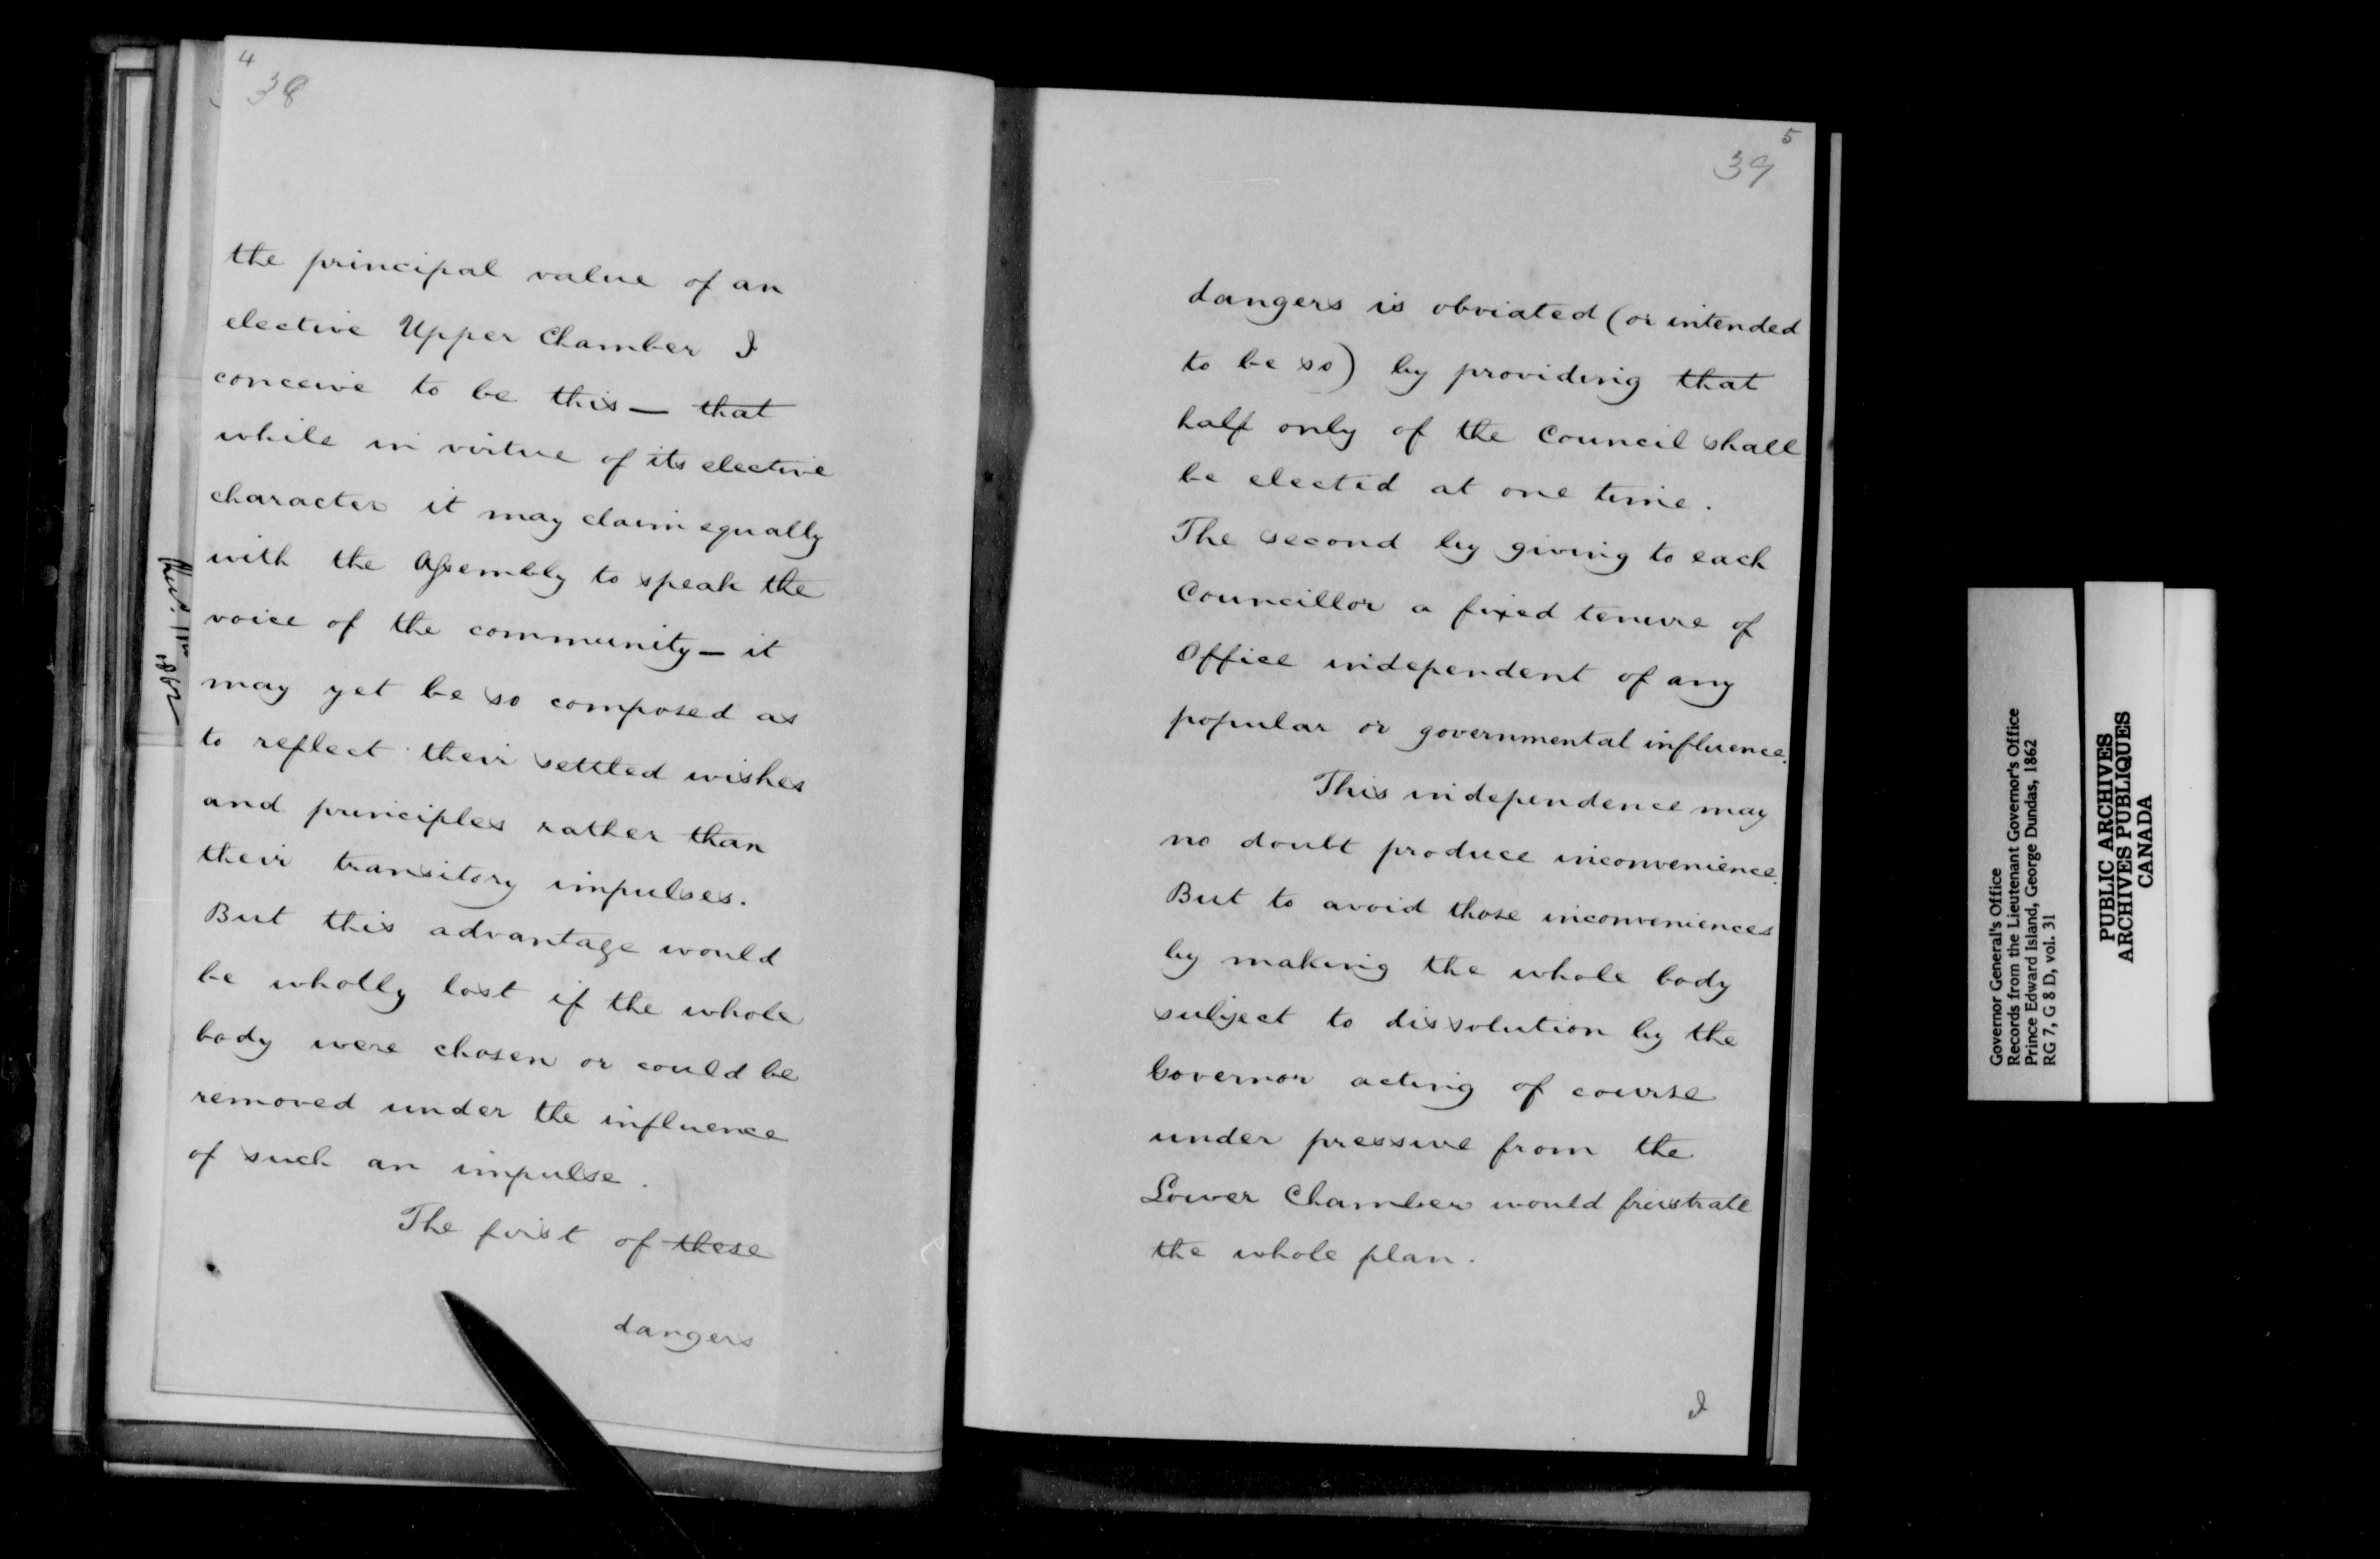 4
38
the principal value of an
elective Upper Chamber I
conceive to be this — that
while in virtue of its elective
character it may claim equally
with the Assembly to speak the
voice of the community — it
may yet be so composed as
to reflect their settled wishes
and principles rather than
their transitory impulses.
But this advantage would
be wholly lost if the whole
body were chosen or could be
removed under the influence
of such an impulse.
The first of these
dangers
5
39
dangers is obviated (or intended
to be so) by providing that
half only of the Council shall
be elected at one time.
The second by giving to each
Councillor a fixed tenure of
Office independent of any
popular or governmental influence.
This independence may
no doubt produce inconvenience.
But to avoid those inconveniences
by making the whole body
subject to dissolution by the
Governor acting of course
under pressure from the
Lower Chamber would frustrate
the whole plan.
I
Governor General's Office
Records from the Lieutenant Governor's Office
Prince Edward Island, George Dundas, 1862
RG 7, G 8 D, vol. 31
PUBLIC ARCHIVES
ARCHIVES PUBLIQUES
CANADA